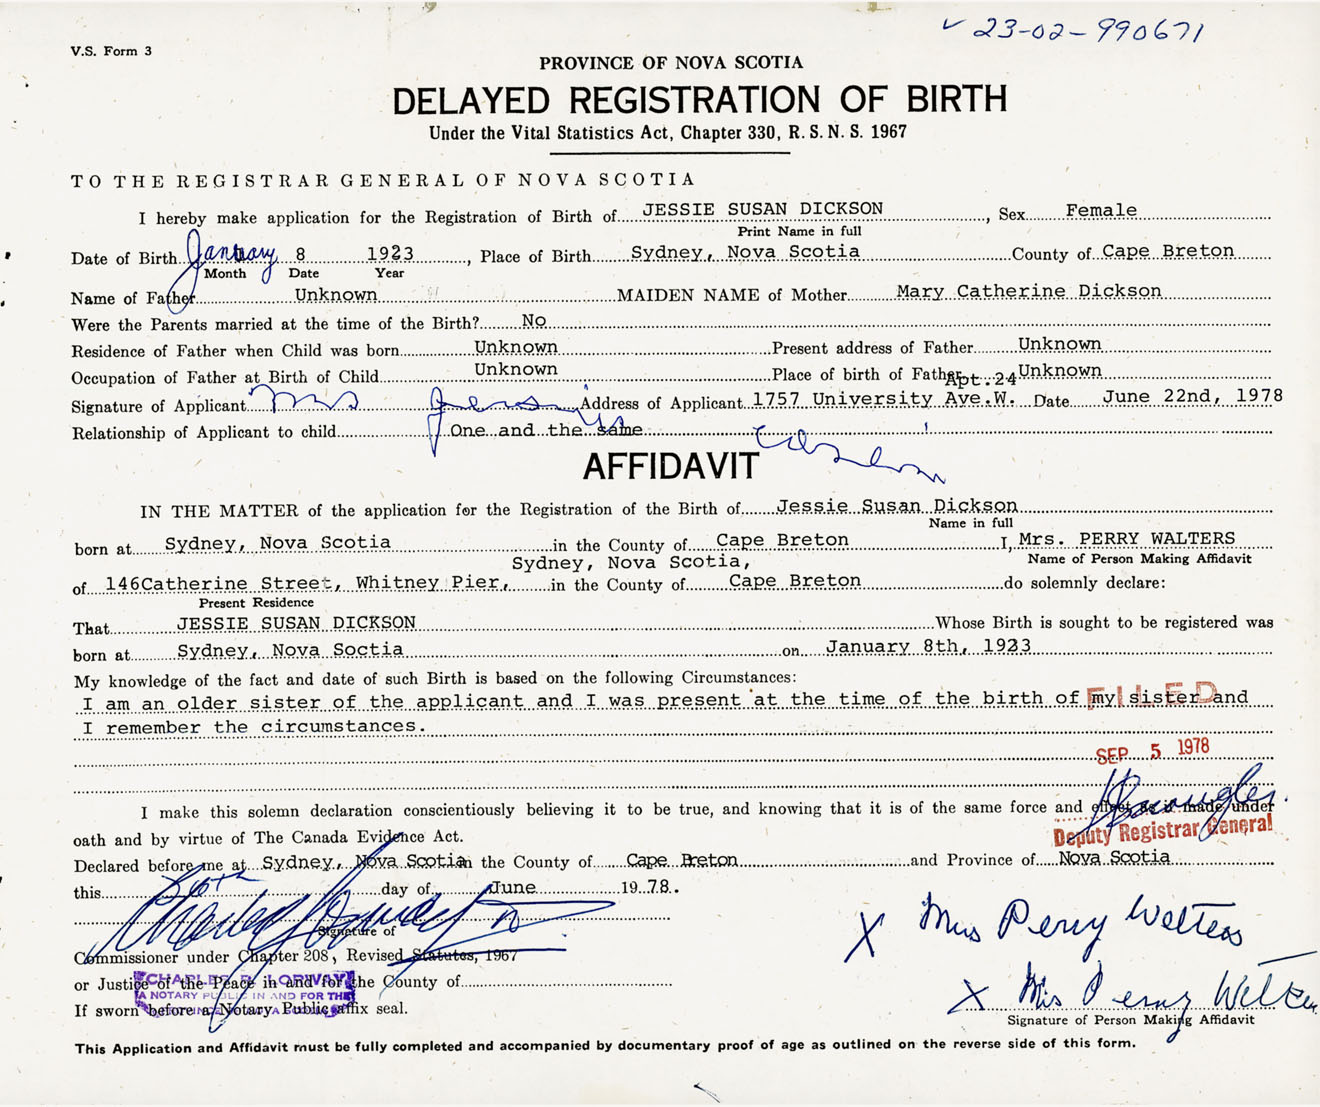 ✓ 23-02-990671
V.S. Form 3
PROVINCE OF NOVA SCOTIA
DELAYED REGISTRATION OF BIRTH
Under the Vital Statistics Act, Chapter 330, R.S.N.S. 1967
TO THE REGISTRAR GENERAL OF NOVA SCOTIA
I hereby make application for the Registration of Birth of JESSIE SUSAN DICKSON, Sex Female
Print Name in full
Date of Birth January 8 1923, Place of Birth Sydney, Nova Scotia County of Cape Breton
Month Date Year
Name of Father Unknown MAIDEN NAME of Mother Mary Catherine Dickson
Were the Parents married at the time of the Birth? No
Residence of Father when Child was born Unknown Present address of Father Unknown
Occupation of Father at Birth of Child Unknown Place of birth of Father Unknown
Apt.24
Signature of Applicant Mrs Address of Applicant 1757 University Ave.W. Date June 22nd, 1978
Relationship of Applicant to child One and the same
AFFIDAVIT
IN THE MATTER of the application for the Registration of the Birth of Jessie Susan Dickson
Name in full
born at Sydney, Nova Scotia in the County of Cape Breton I, Mrs. PERRY WALTERS
Name of Person Making Affidavit
Sydney, Nova Scotia,
of 146Catherine Street, Whitney Pier, in the County of Cape Breton do solemnly declare:
Present Residence
That JESSIE SUSAN DICKSON Whose Birth is sought to be registered was
born at Sydney, Nova Soctia on January 8th, 1923
My knowledge of the fact and date of such Birth is based on the following Circumstances:
I am an older sister of the applicant and I was present at the time of the birth of my sister and
FILED
I remember the circumstances.
SEP 5 1978
I make this solemn declaration conscientiously believing it to be true, and knowing that it is of the same force and effect as if made under
oath and by virtue of The Canada Evidence Act.
Deputy Registrar General
Declared before me at Sydney, Nova Scotia in the County of Cape Breton and Province of Nova Scotia
this day of June 1978.
Signature of
X Mrs Perry Welters
Commissioner under Chapter 208, Revised Statutes, 1967
or Justice of the Peace in and for the County of
CHARLES R. LORWAY
A NOTARY PUBLIC IN AND FOR THE
If sworn before a Notary Public affix seal.
X Mrs Perry Welters
Signature of Person Making Affidavit
This Application and Affidavit must be fully completed and accompanied by documentary proof of age as outlined on the reverse side of this form.